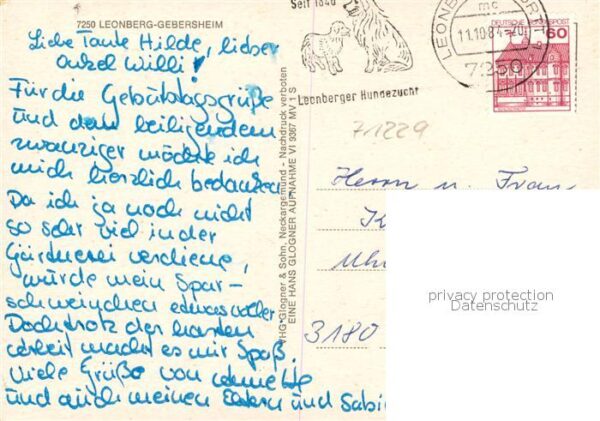 7250 LEONBERG-GEBERSHEIM
Liebe Tante Hilde, lieber
onkel Willi!
Für die Gebutstagsgrüße
und dem beiligendem
zwanziger möchte ich
mich herzlich bedanken
Da ich ja noch nicht
so sehr viel in der
Gärtnerei verdiene,
würde mein Spar-
schweinchen etwas voller
Doch trotz der harten
arbeit macht es mir Spaß.
Viele Grüße von
und auch meinen Eltern und Sabi
HG-Glogner & Sohn, Neckargemünd - Nachdruck verboten
EINE HANS GLOGNER AUFNAHME VI 9367 MV 1 S
Seit 1846
Leonberger Hundezucht
LEONB
mc
11.10.84-20
7250
DEUTSCHE BUNDESPOST
60
71229
Herrn u. Frau
K
Uhr
3180
privacy protection
Datenschutz